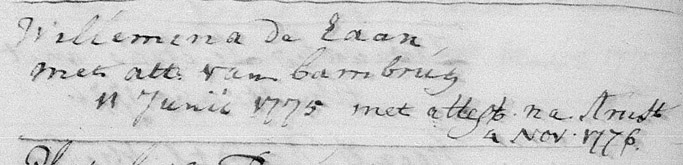 Willemina de Laan,
met att. van bambrug
11 Junii 1775 met attest. na
4 Nov. 1776.